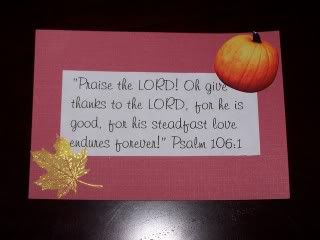 "Praise the LORD! Oh give
thanks to the LORD, for he is
good, for his steadfast love
endures forever!" Psalm 106:1